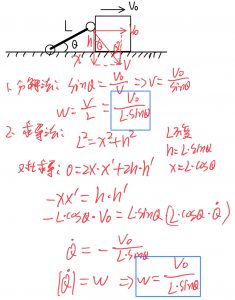 V₀
L
V₀
h
θ
θ
x
V
1. 分解法: sinθ = V₀/V ⇒ V = V₀/sinθ
W = V/L = V₀/(L·sinθ)
2. 求导法: L² = x² + h² L不变
h = L·sinθ
对t求导: 0 = 2x·x' + 2h·h' x = L·cosθ
-xx' = h·h'
-L·cosθ·V₀ = L·sinθ(L·cosθ·θ̇)
θ̇ = - V₀/(L·sinθ)
|θ̇| = W ⇒ W = V₀/(L·sinθ)